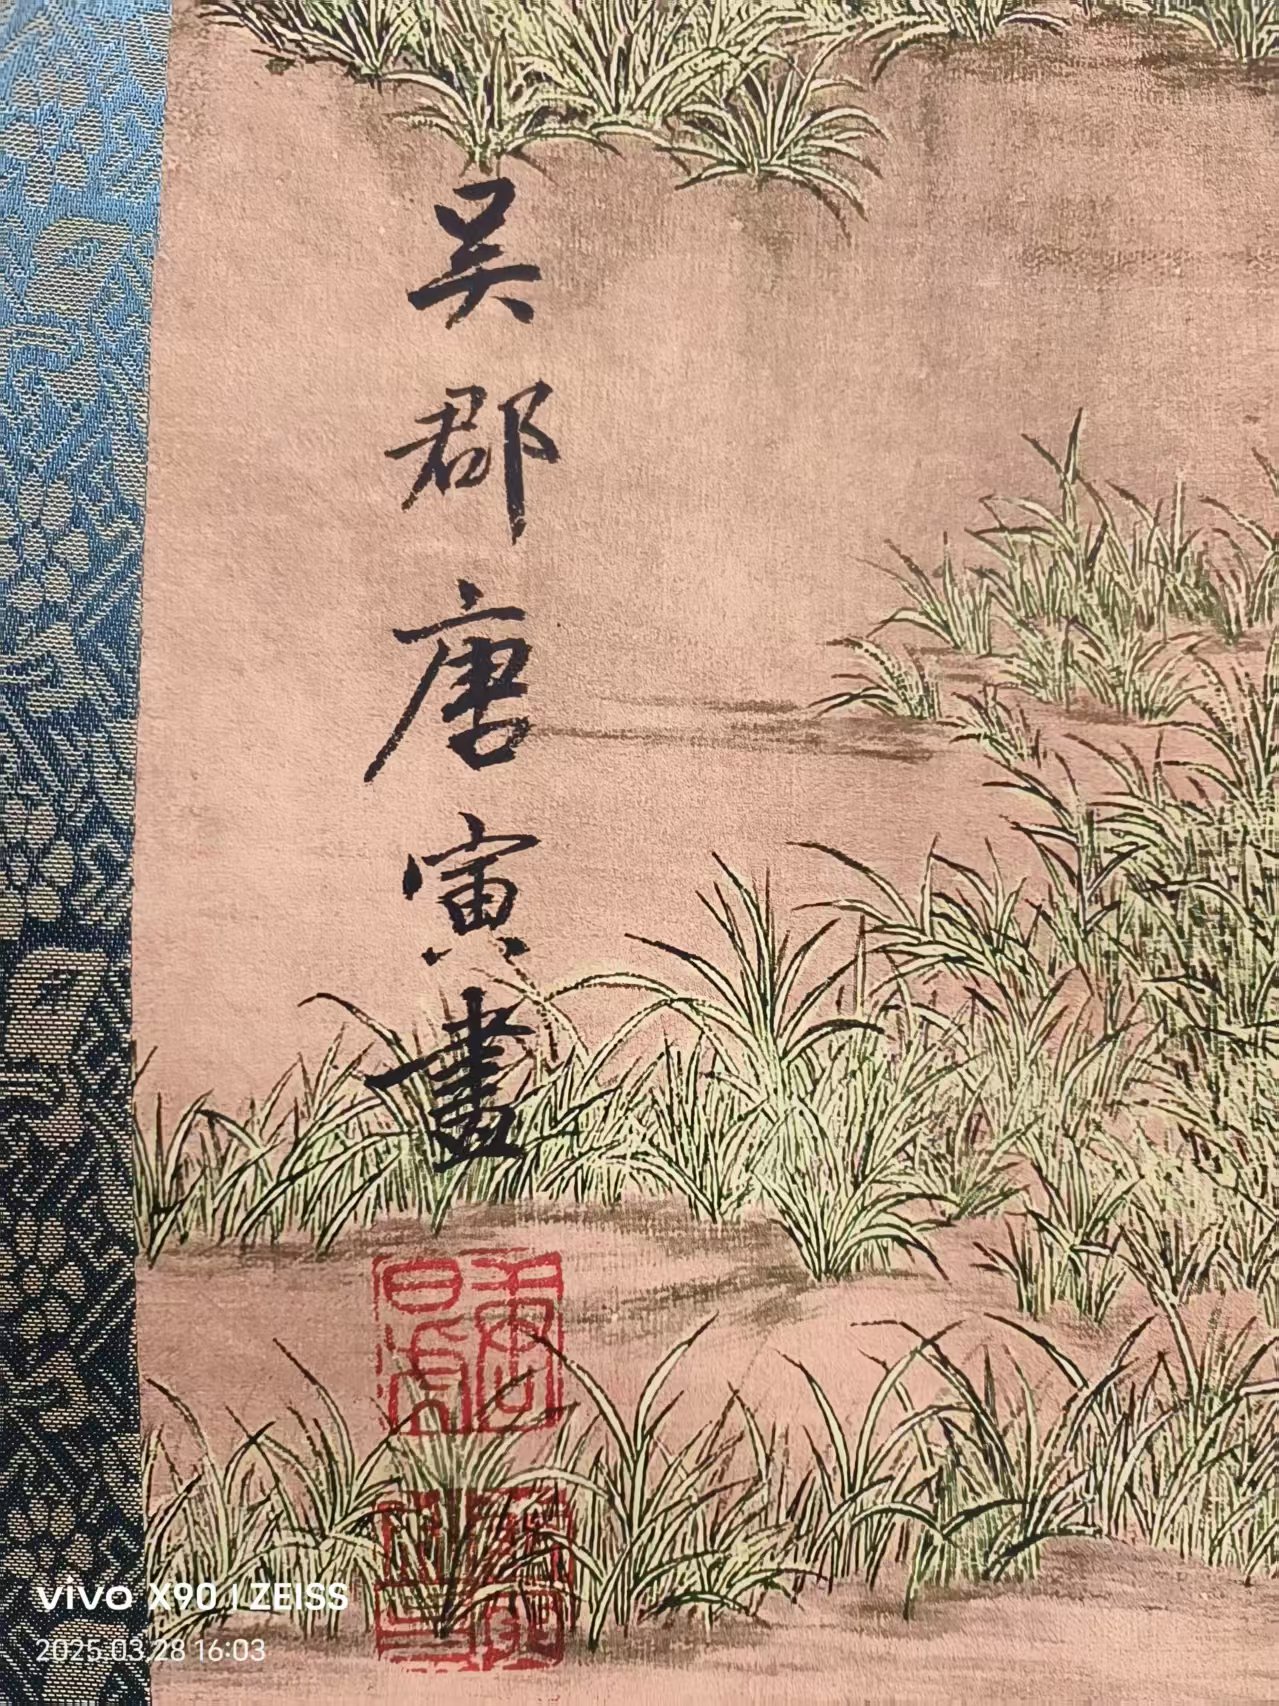 吳郡唐寅畫
vivo X90 | ZEISS
2025.03.28 16:03